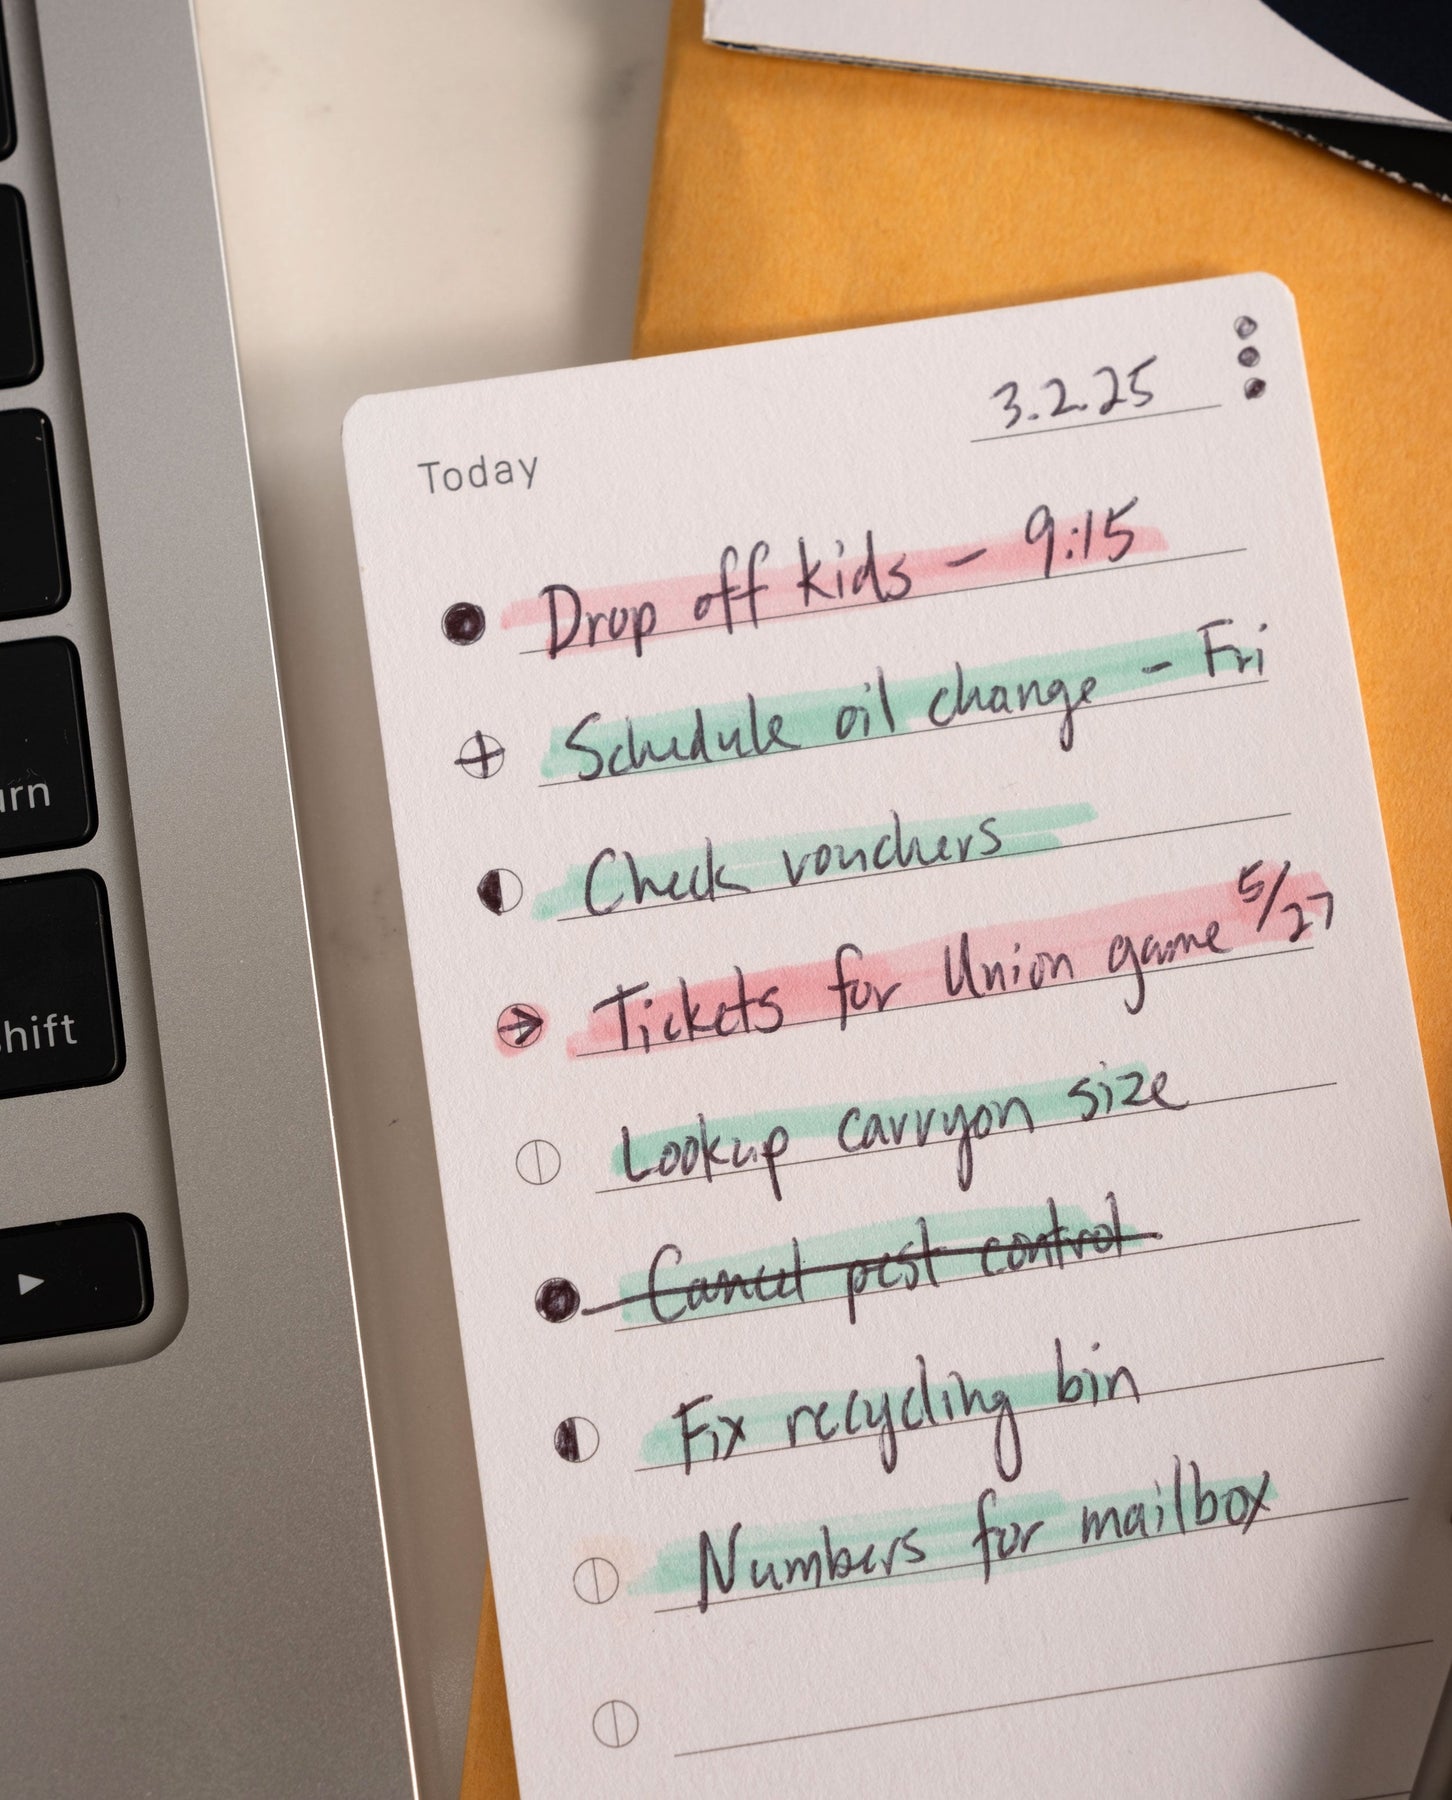 3.2.25
Today
Drop off kids – 9:15
Schedule oil change – Fri
Check vouchers
Tickets for Union game 5/27
Lookup carryon size
Cancel pest control
Fix recycling bin
Numbers for mailbox
urn
shift